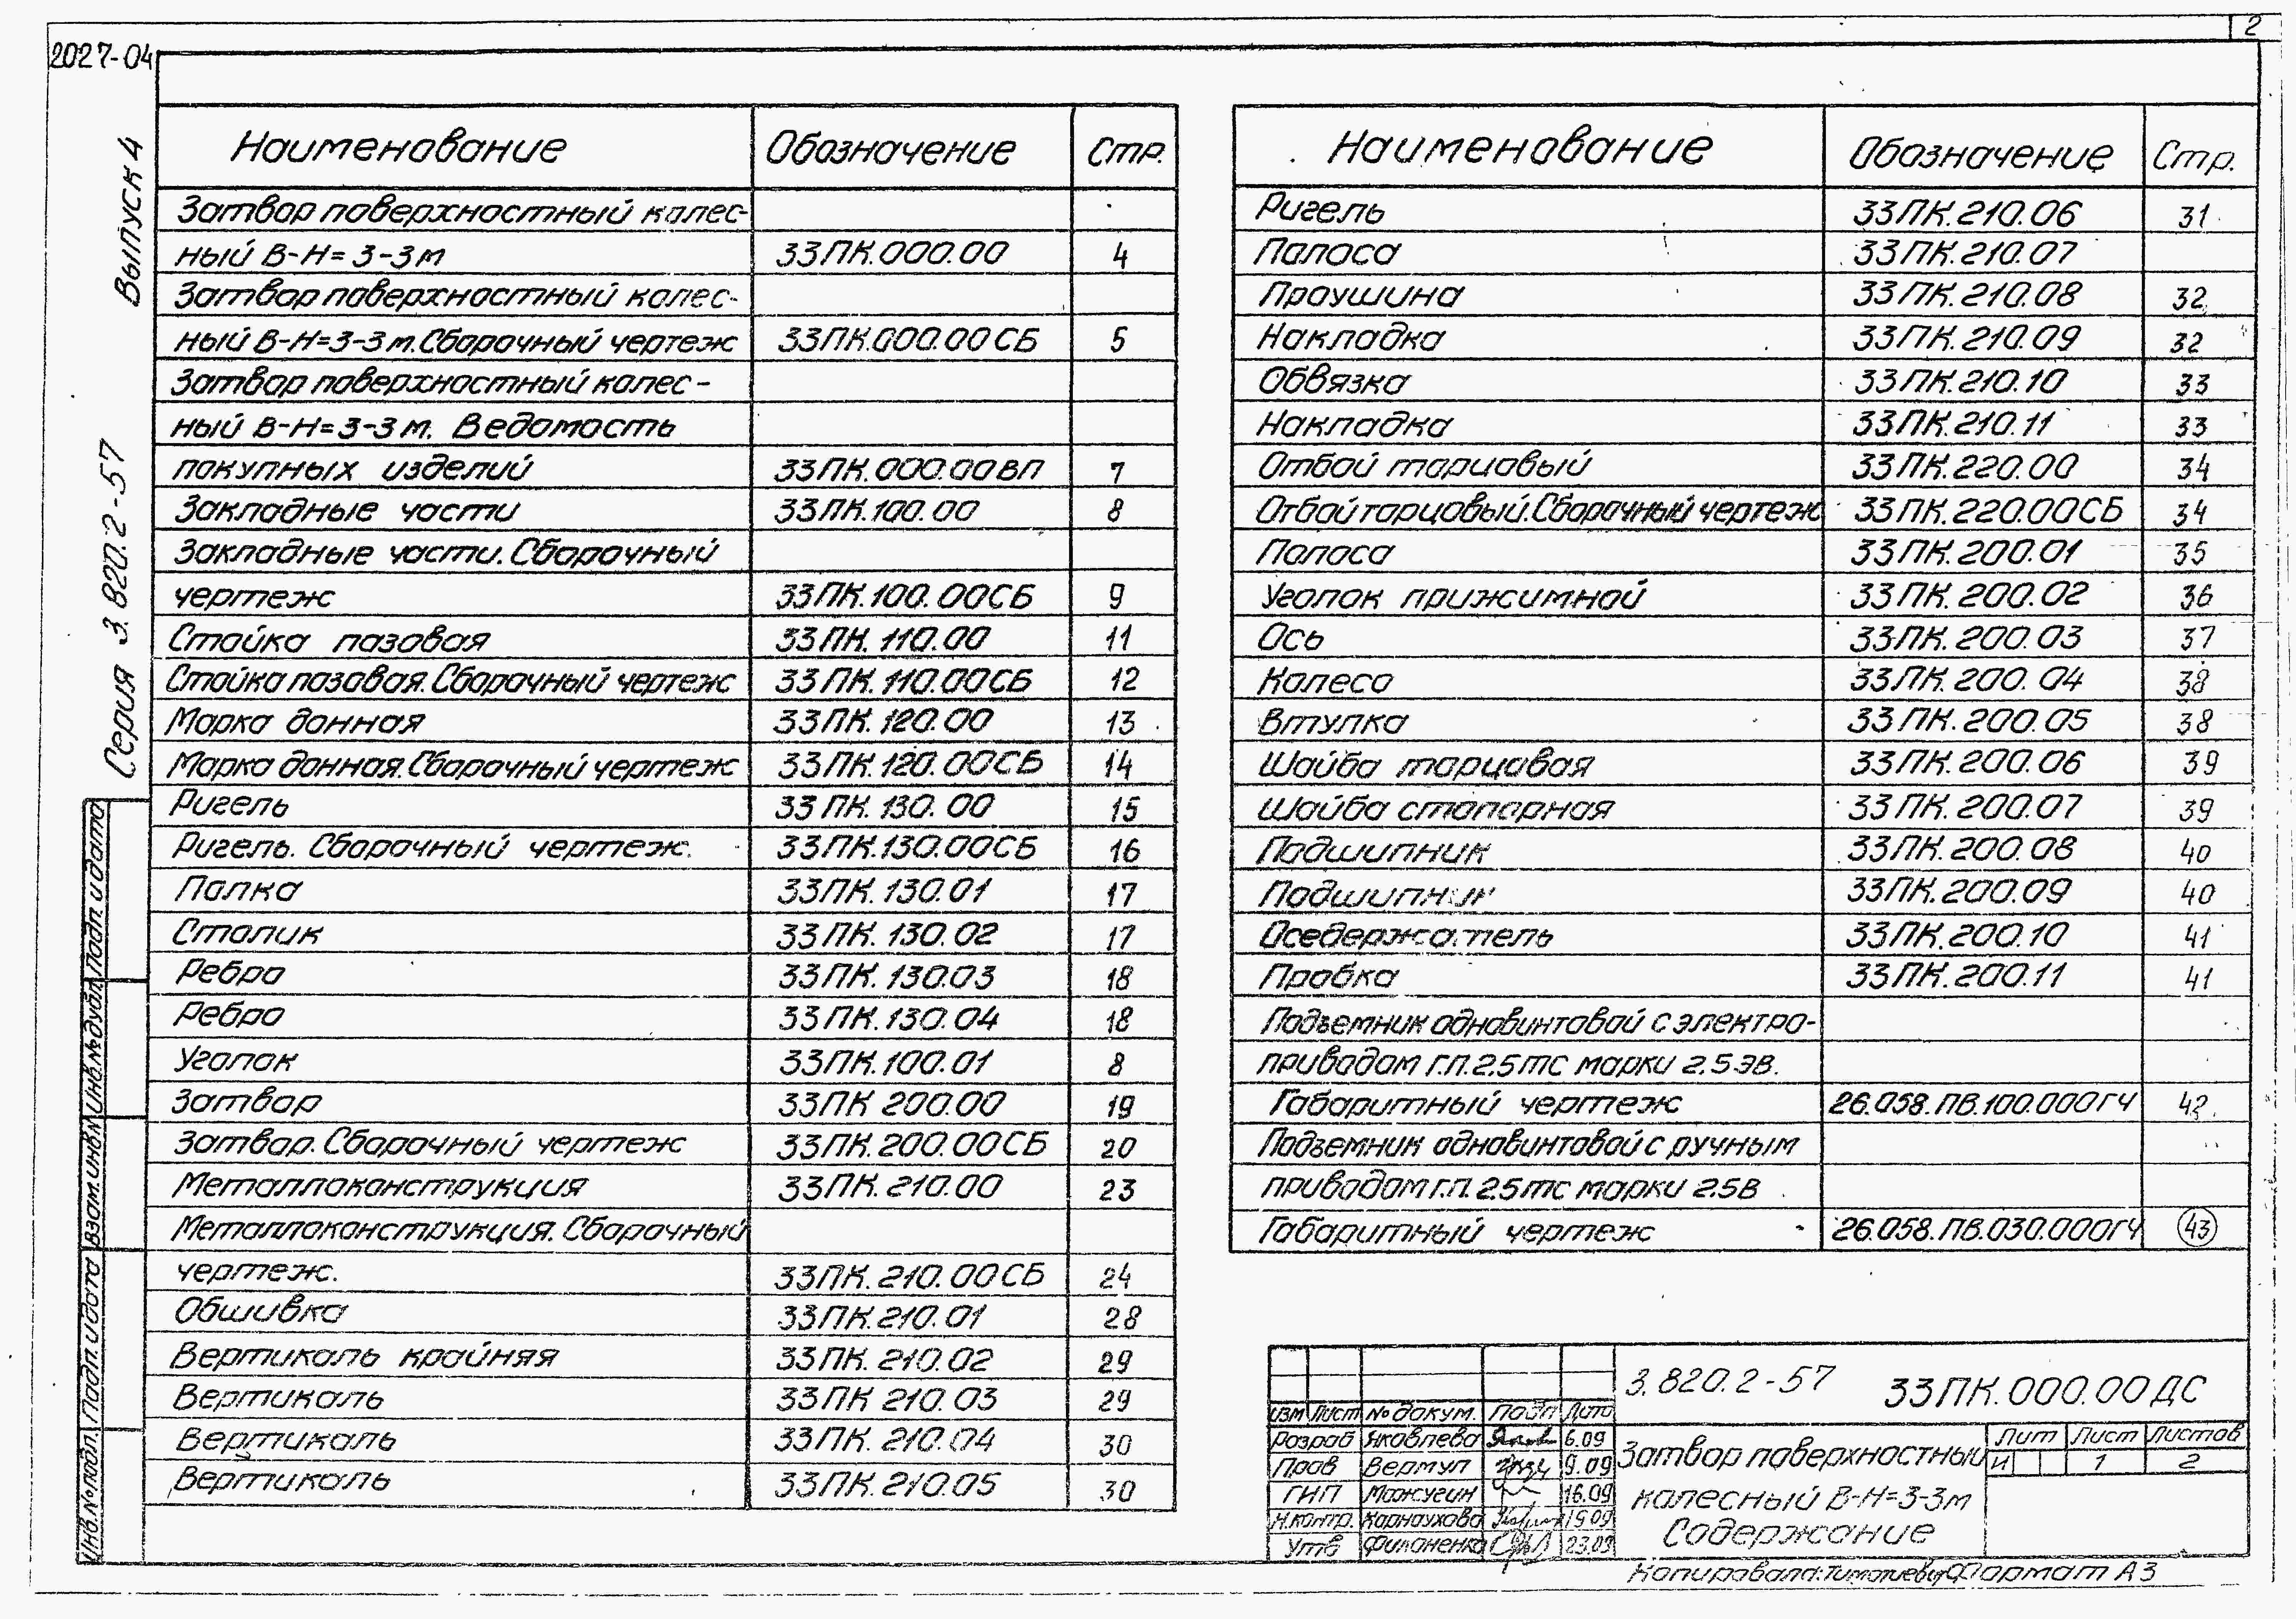 2
2027-04
Серия 3.820.2-57 Выпуск 4
Наименование Обозначение Стр.
Затвор поверхностный колес-
ный В-Н=3-3м 33ПК.000.00 4
Затвор поверхностный колес-
ный В-Н=3-3м. Сборочный чертеж 33ПК.000.00СБ 5
Затвор поверхностный колес-
ный В-Н=3-3м. Ведомость
покупных изделий 33ПК.000.00ВП 7
Закладные части 33ПК.100.00 8
Закладные части. Сборочный
чертеж 33ПК.100.00СБ 9
Стойка пазовая 33ПК.110.00 11
Стойка пазовая. Сборочный чертеж 33ПК.110.00СБ 12
Марка донная 33ПК.120.00 13
Марка донная. Сборочный чертеж 33ПК.120.00СБ 14
Ригель 33ПК.130.00 15
Ригель. Сборочный чертеж. 33ПК.130.00СБ 16
Полка 33ПК.130.01 17
Столик 33ПК.130.02 17
Ребро 33ПК.130.03 18
Ребро 33ПК.130.04 18
Уголок 33ПК.100.01 8
Затвор 33ПК 200.00 19
Затвор. Сборочный чертеж 33ПК.200.00СБ 20
Металлоконструкция 33ПК.210.00 23
Металлоконструкция. Сборочный
чертеж. 33ПК.210.00СБ 24
Обшивка 33ПК.210.01 28
Вертикаль крайняя 33ПК.210.02 29
Вертикаль 33ПК 210.03 29
Вертикаль 33ПК.210.04 30
Вертикаль 33ПК.210.05 30
Наименование Обозначение Стр.
Ригель 33ПК.210.06 31
Полоса 33ПК.210.07
Проушина 33ПК.210.08 32
Накладка 33ПК.210.09 32
Обвязка 33ПК.210.10 33
Накладка 33ПК.210.11 33
Отбой торцовый 33ПК.220.00 34
Отбой торцовый. Сборочный чертеж 33ПК.220.00СБ 34
Полоса 33ПК.200.01 35
Уголок прижимной 33ПК.200.02 36
Ось 33ПК.200.03 37
Колесо 33ПК.200.04 38
Втулка 33ПК.200.05 38
Шайба торцовая 33ПК.200.06 39
Шайба стопорная 33ПК.200.07 39
Подшипник 33ПК.200.08 40
Подшипник 33ПК.200.09 40
Оседержатель 33ПК.200.10 41
Пробка 33ПК.200.11 41
Подъемник одновинтовой с электро-
приводом Г.П.2.5тс марки 2.5ЭВ.
Габаритный чертеж 26.058.ПВ.100.000ГЧ 42
Подъемник одновинтовой с ручным
приводом г.п. 2.5тс марки 2.5В
Габаритный чертеж 26.058.ПВ.030.000ГЧ 43
Подп. и дата
Инв.№ дубл.
Взам.инв.№
Подп. и дата
Инв.№ подл.
3.820.2-57 33ПК.000.00ДС
Изм Лист № докум. Подп Дата
Разраб Яковлева 6.09
Пров Вермул 9.09
ГИП Мажугин 16.09
Н.контр. Карнаухова 15.09
Утв Филоненко 23.09
Затвор поверхностный
колесный В-Н=3-3м
Содержание
Лит Лист Листов
И 1 2
Копировала: Формат А3